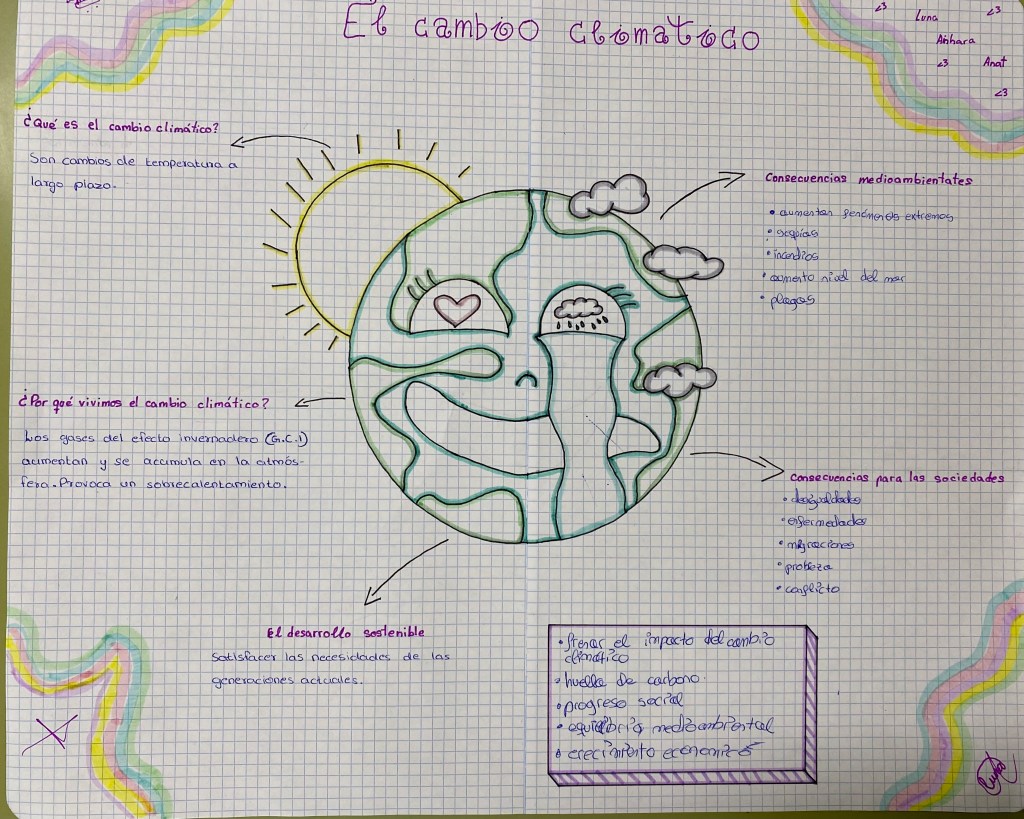 El cambio climático
<3
Luna
<3
Ainhara
<3
Anat
<3
¿Qué es el cambio climático?
Son cambios de temperatura a
largo plazo.
Consecuencias medioambientales
• aumentan fenómenos extremos
• sequías
• incendios
• aumento nivel del mar
• plagas
¿Por qué vivimos el cambio climático?
Los gases del efecto invernadero (G.C.I)
aumentan y se accumula en la atmós-
fera. Provoca un sobrecalentamiento.
Consecuencias para las sociedades
• desigualdades
• enfermedades
• migraciones
• probeza
• conflicto
El desarrollo sostenible
Satisfacer las necesidades de las
generaciones actuales.
• frenar el impacto del cambio
climático
• huella de carbono.
• progreso social
• equilibrio medioambiental
• crecimiento económico